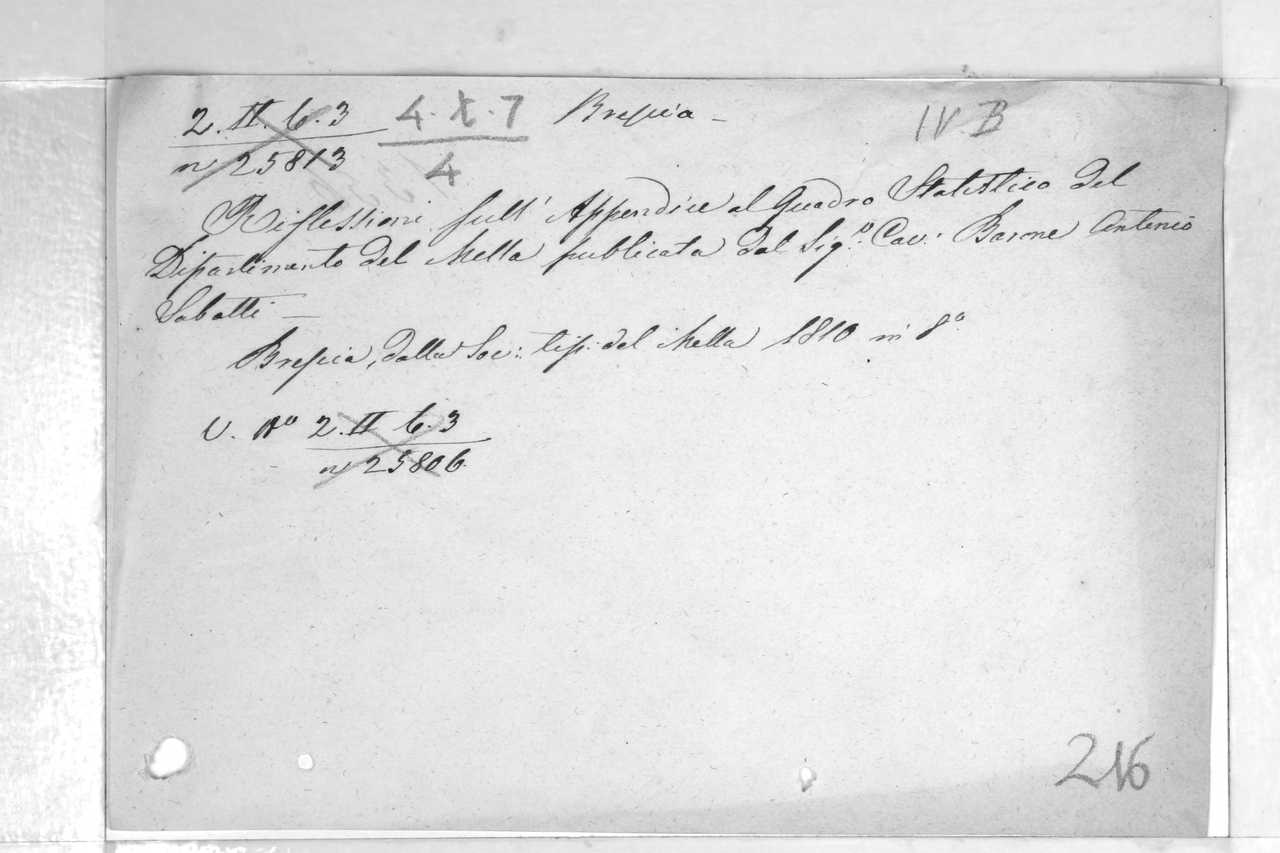 2.II.6.3 4.X.7 Brescia - IV B
n 25813 4
Riflessioni sull' Appendice al Quadro Statistico del
Dipartimento del Mella publicata dal Sig.º Cav: Barone Antonio
Sabatti —
Brescia, dalla Soc: tip: del Mella 1810 in 8º
V. Nº 2.II 6.3
n 25806.
216